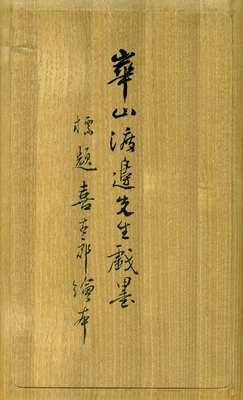 崋山渡邉先生戯墨
標題喜太郎繪本